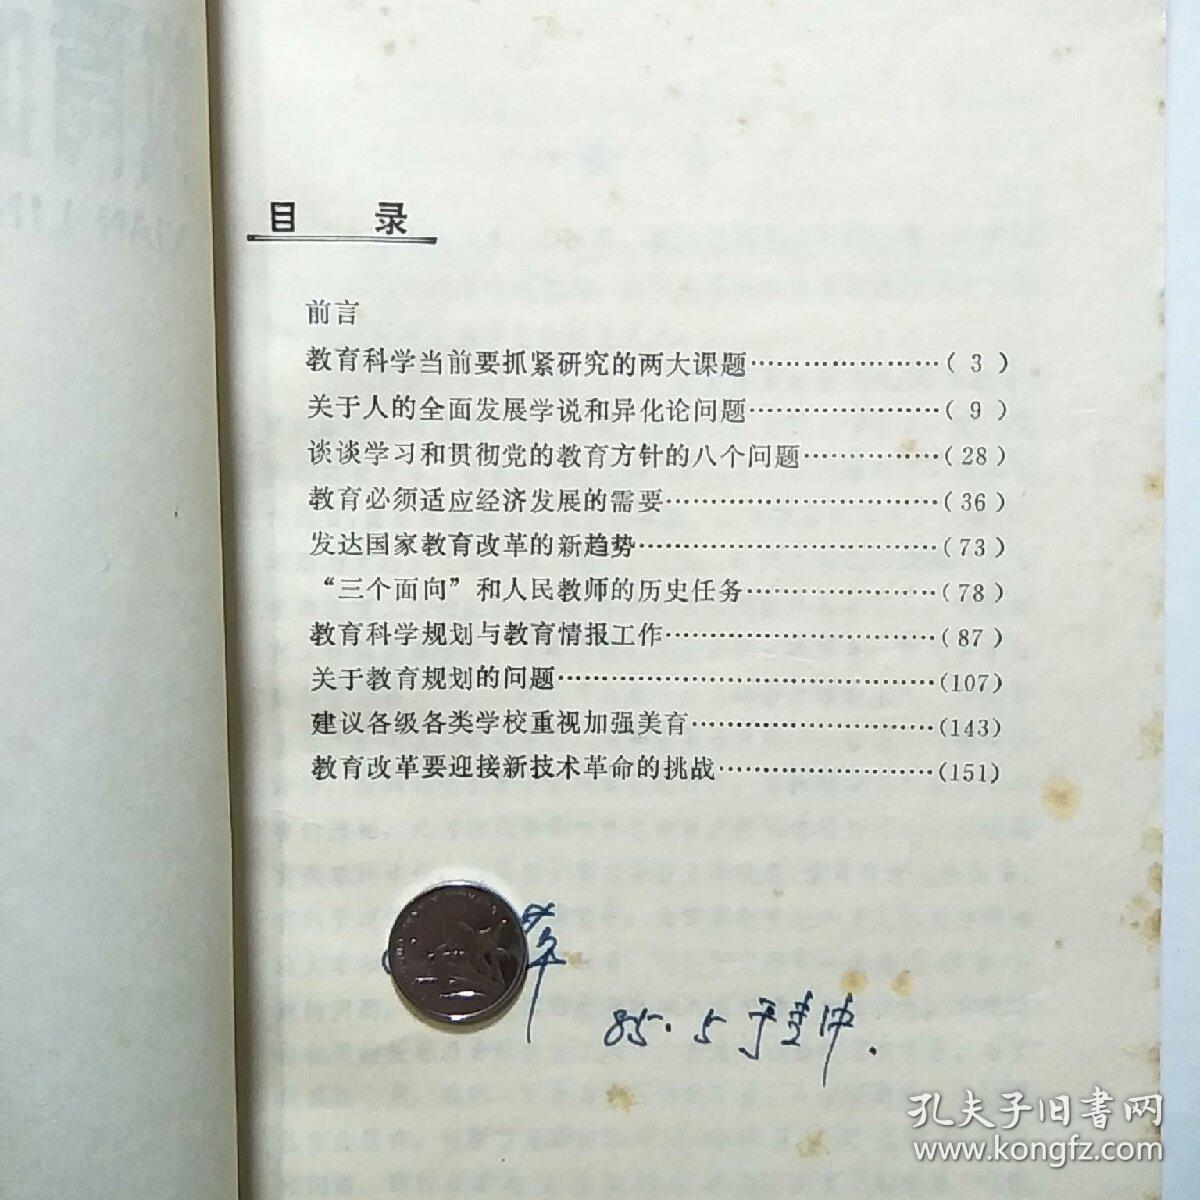 目 录
前言
教育科学当前要抓紧研究的两大课题…………………( 3 )
关于人的全面发展学说和异化论问题…………………( 9 )
谈谈学习和贯彻党的教育方针的八个问题……………(28)
教育必须适应经济发展的需要…………………………(36)
发达国家教育改革的新趋势……………………………(73)
“三个面向”和人民教师的历史任务…………………(78)
教育科学规划与教育情报工作…………………………(87)
关于教育规划的问题……………………………………(107)
建议各级各类学校重视加强美育………………………(143)
教育改革要迎接新技术革命的挑战……………………(151)
85.5于
孔夫子旧书网
www.kongfz.com